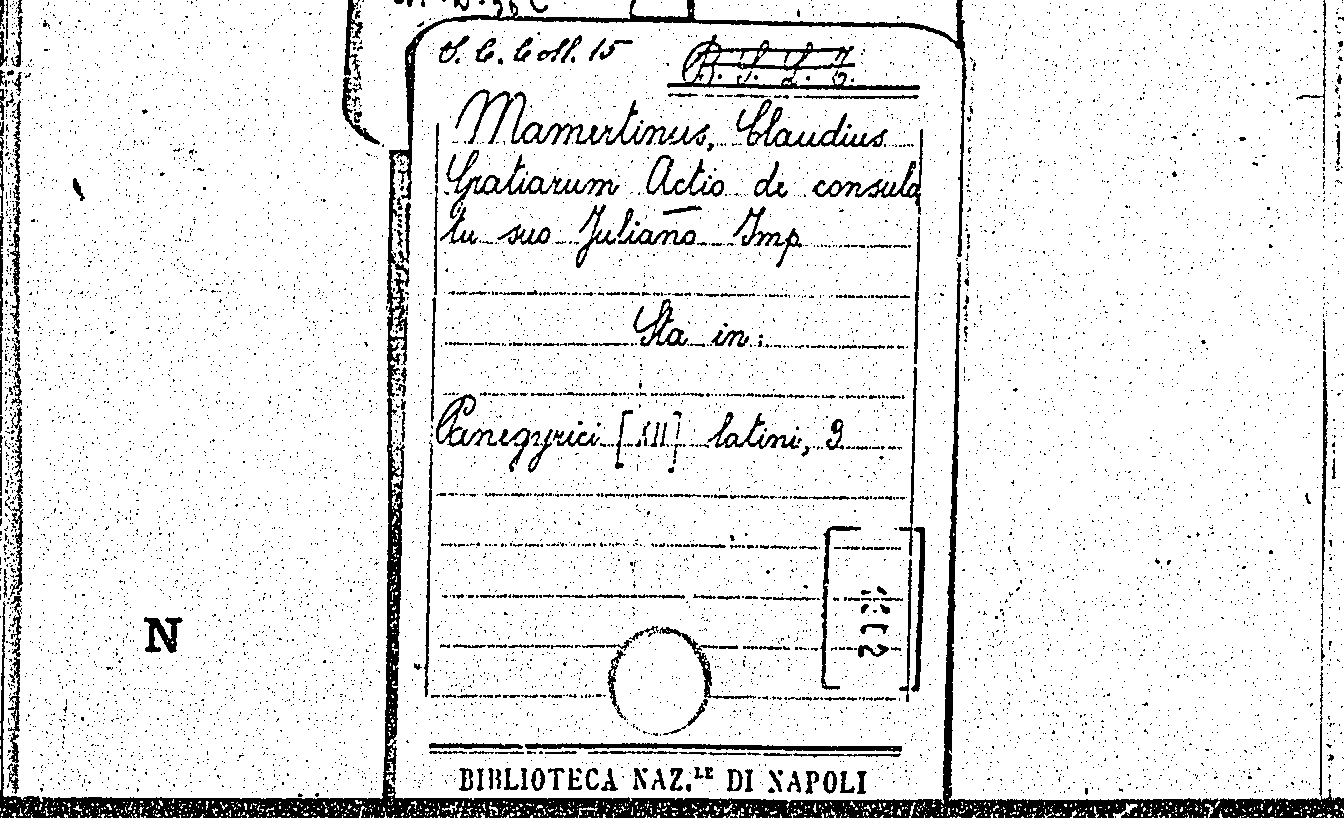 S. C. Coll. 15
B. S. L. 7.
Mamertinus, Claudius
Gratiarum Actio de consula
tu suo Juliano Imp
Sta in:
Panegyrici [XII] latini, 9
N
BIBLIOTECA NAZ.LE DI NAPOLI